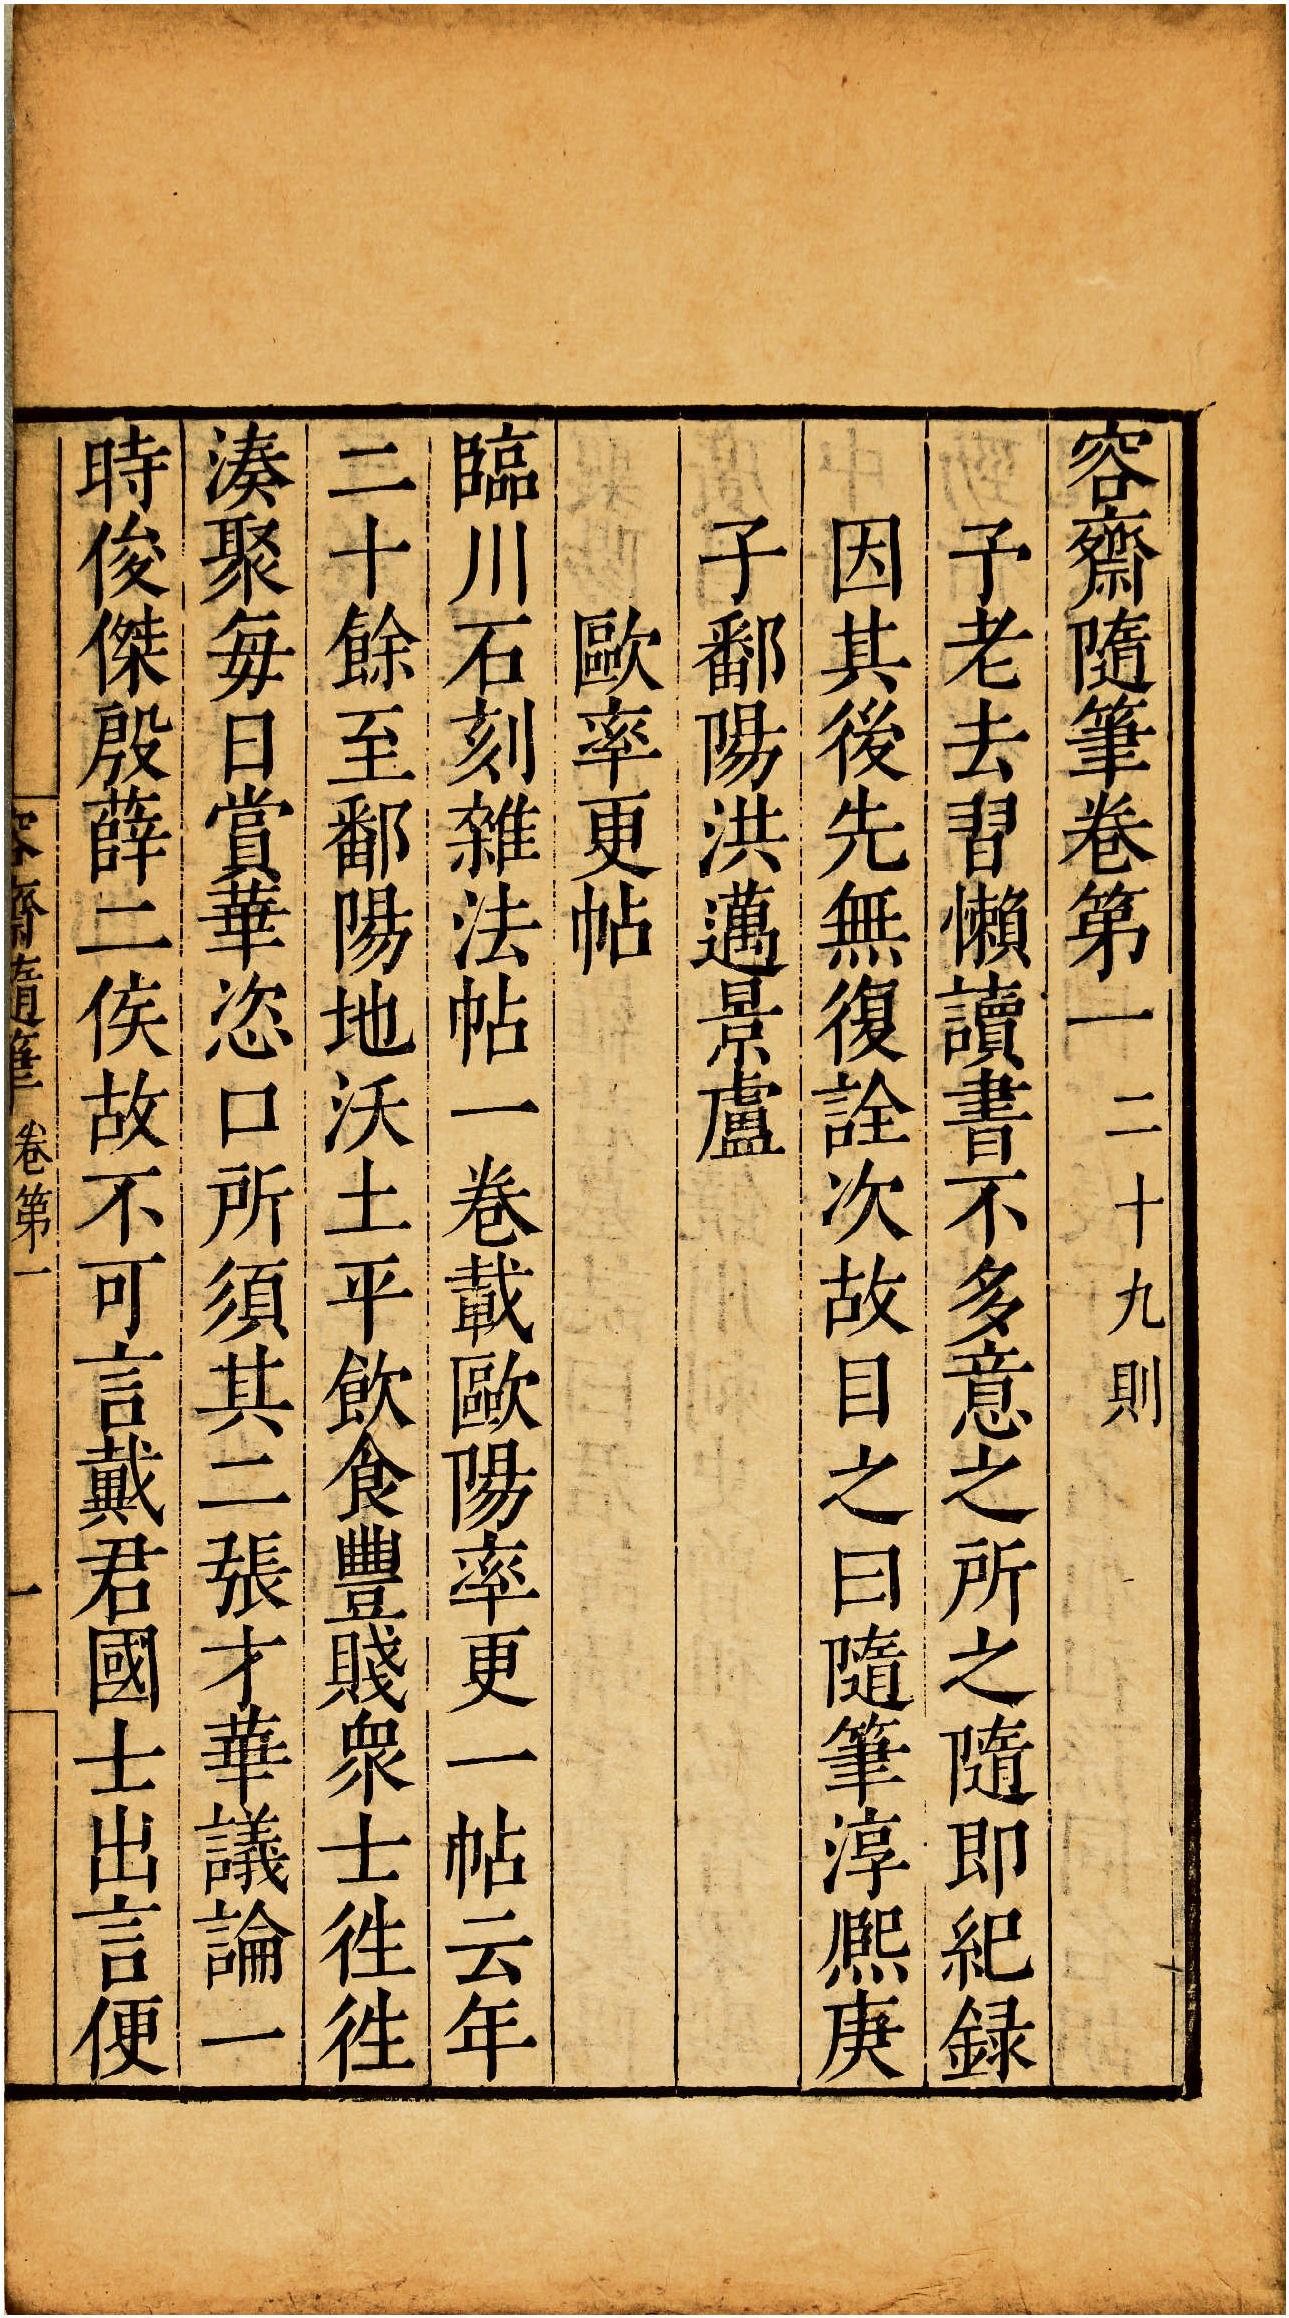 容齋隨筆卷第一 二十九則
予老去習懶讀書不多意之所之隨即紀錄
因其後先無復詮次故目之曰隨筆淳熈庚
子鄱陽洪邁景盧
歐率更帖
臨川石刻雜法帖一卷載歐陽率更一帖云年
二十餘至鄱陽地沃土平飲食豐賤衆士徃徃
湊聚每日賞華恣口所須其二張才華議論一
時俊傑殷薛二侯故不可言戴君國士出言便
容齋隨筆 卷第一 一